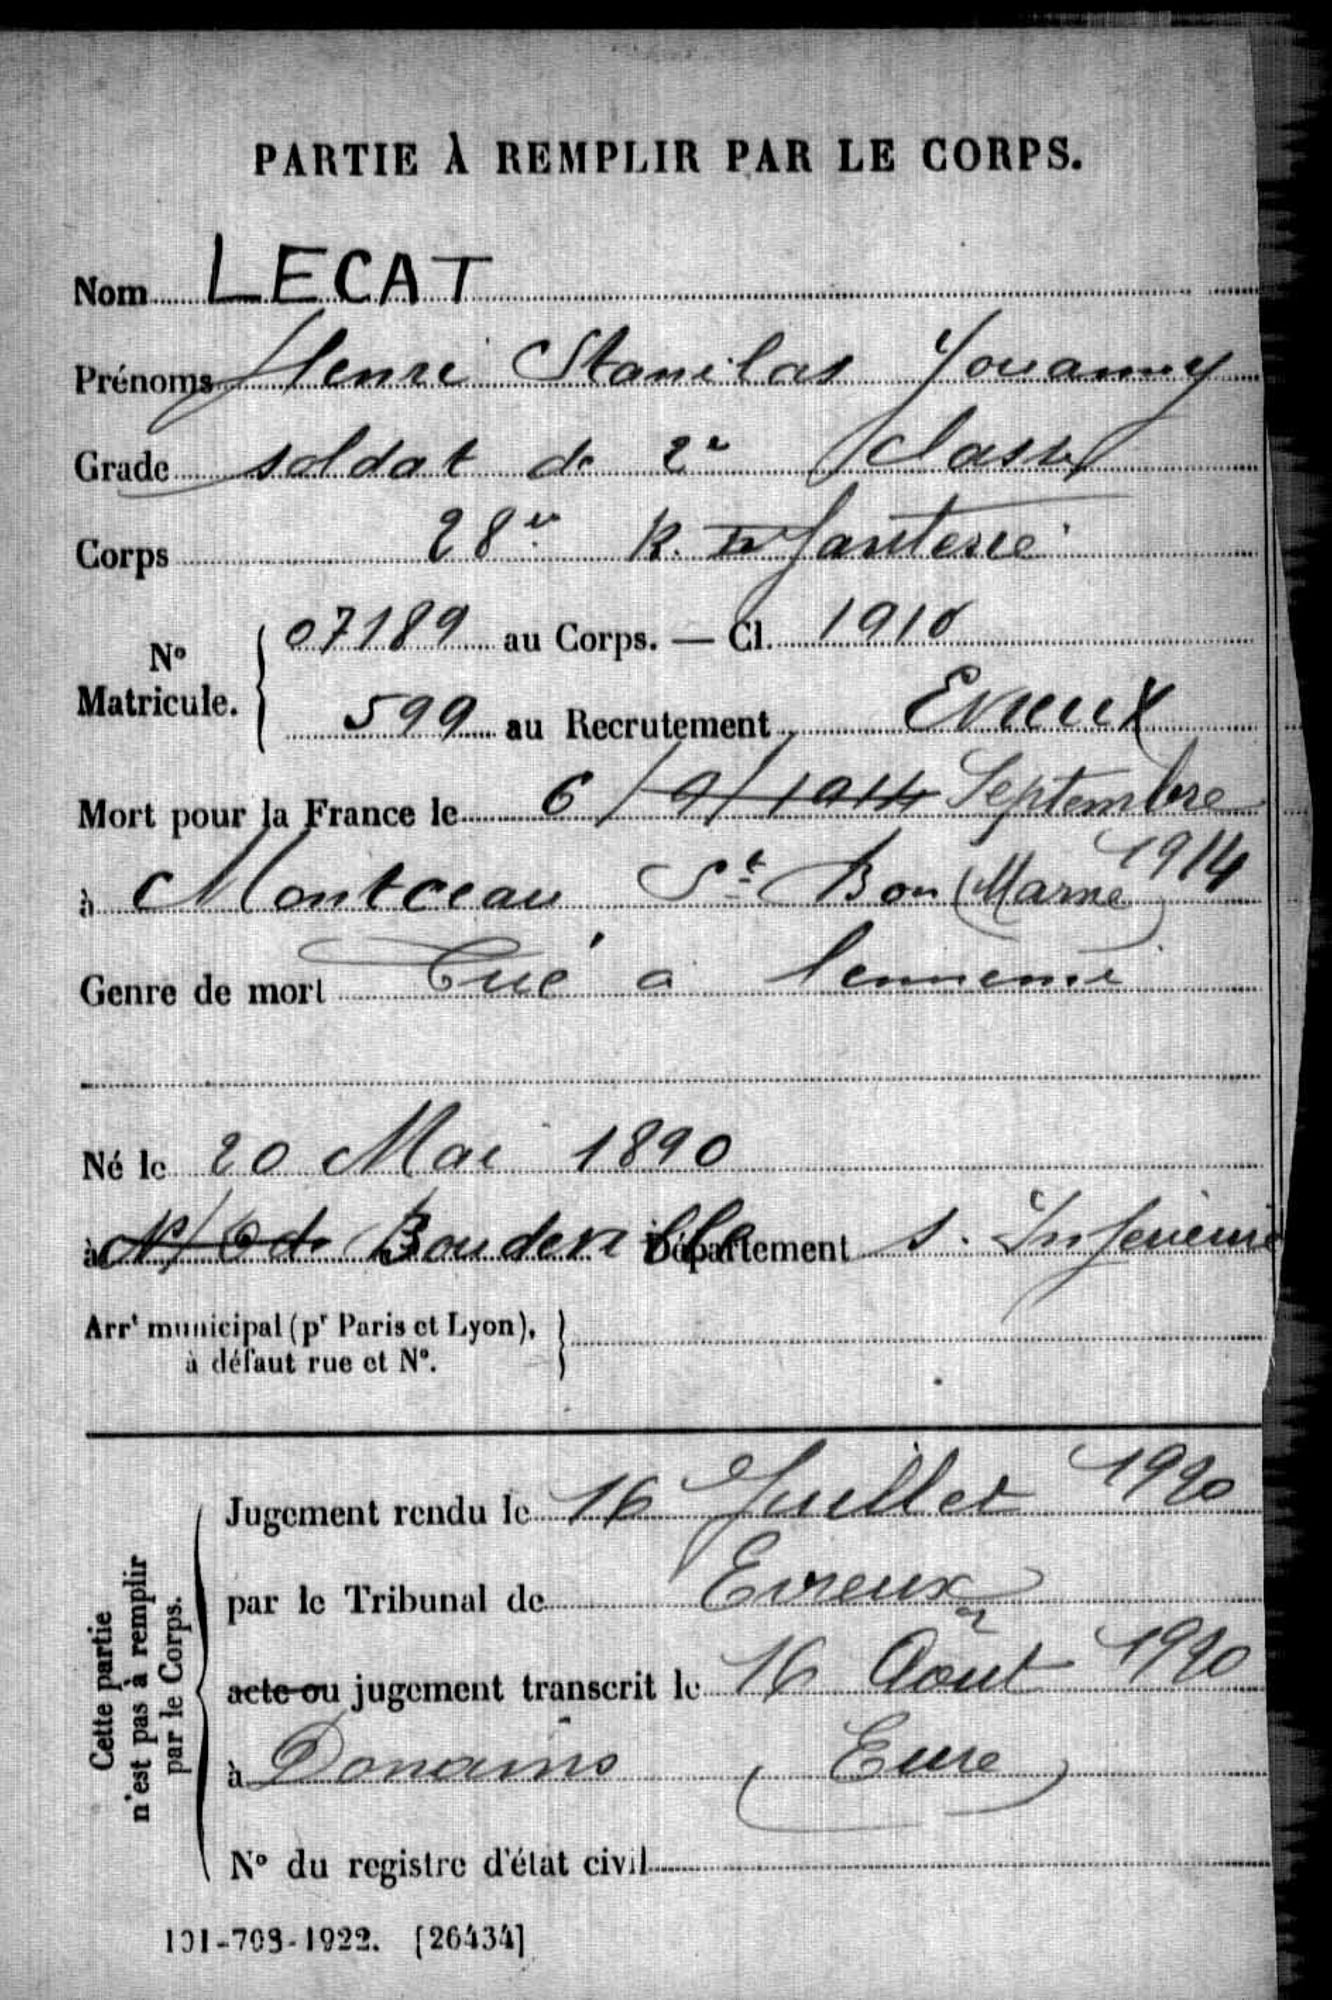 PARTIE À REMPLIR PAR LE CORPS.
Nom LECAT
Prénoms Henri Stanilas Jouanny
Grade soldat de 2e Classe
Corps 28e R. Infanterie
N° Matricule. 07189 au Corps. — Cl. 1910
599 au Recrutement Evreux
Mort pour la France le 6/9/1914 Septembre 1914
à Montceau St Bon (Marne)
Genre de mort Tué à lennemi
Né le 20 Mai 1890
à Boudeville Département S. Inferieure
Arrt municipal (pr Paris et Lyon),
à défaut rue et N°.
Cette partie
n'est pas à remplir
par le Corps.
Jugement rendu le 16 Juillet 1920
par le Tribunal de Evreux
acte ou jugement transcrit le 16 Août 1920
à Donains (Eure)
N° du registre d'état civil
101-708-1922. [26434]